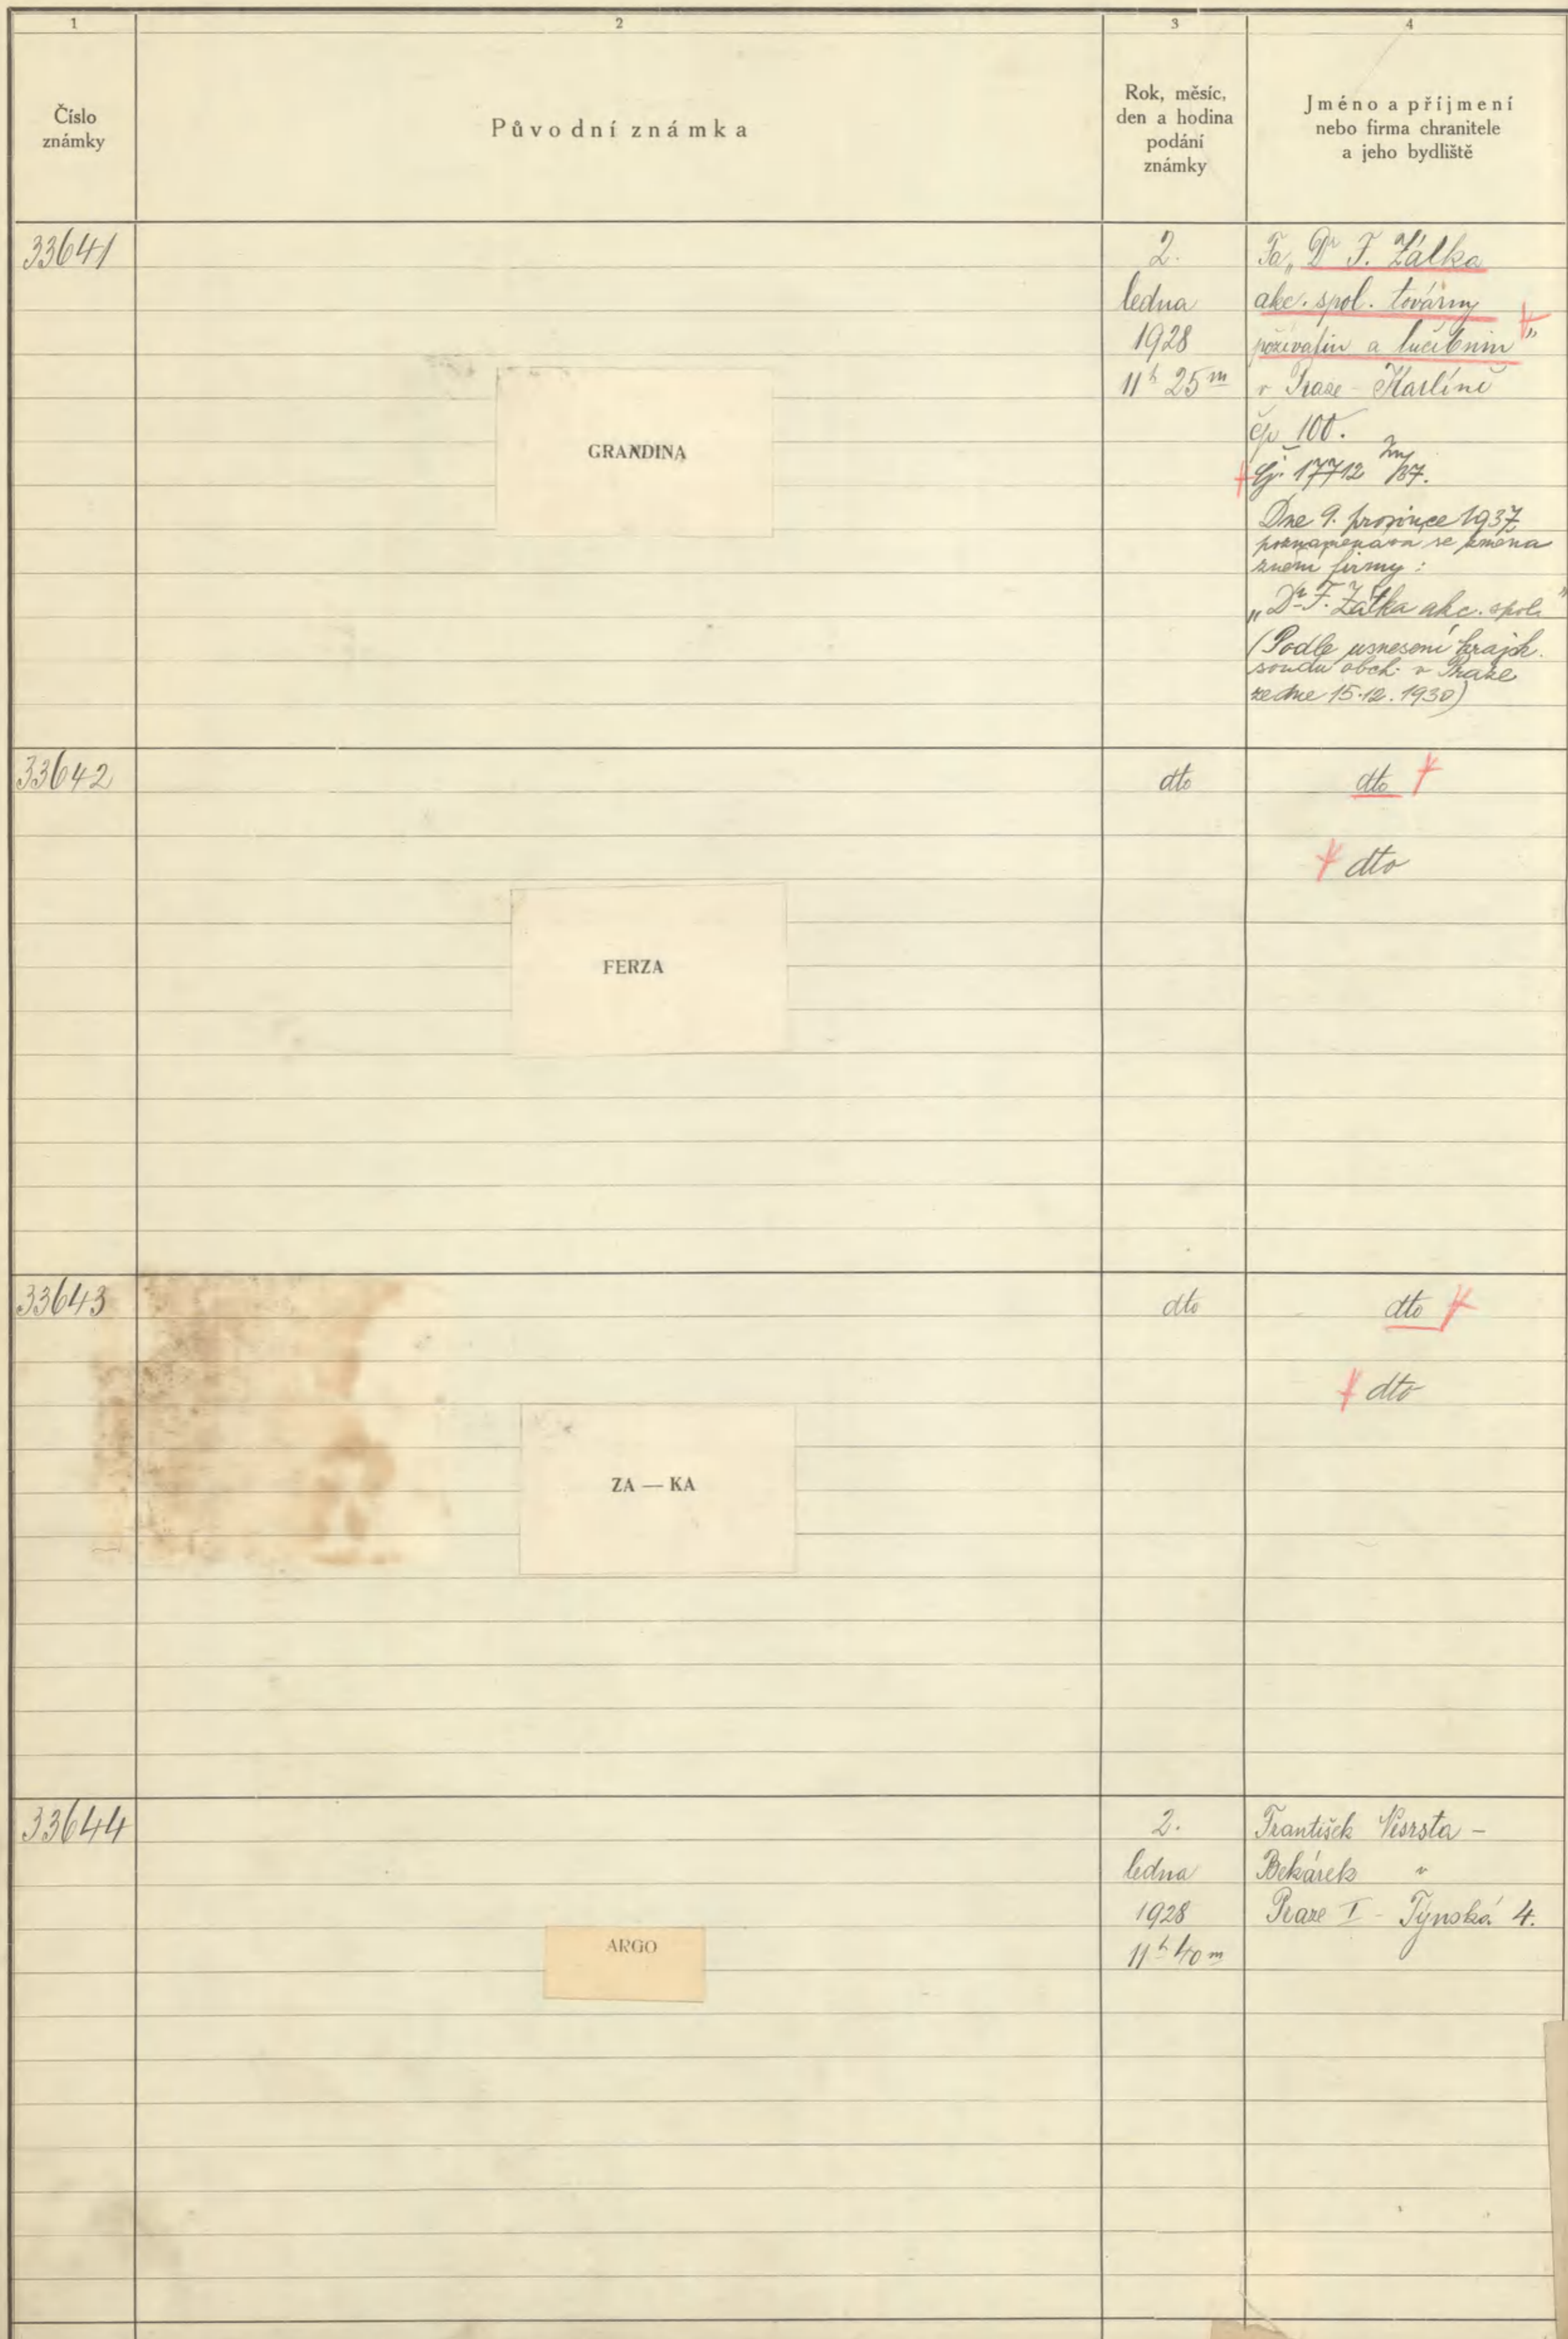 1
2
3
4
Číslo
známky
Původní známka
Rok, měsíc,
den a hodina
podání
známky
Jméno a příjmení
nebo firma chranitele
a jeho bydliště
33641
GRANDINA
2.
ledna
1928
11h 25m
Fa „Dr F. Zátka
akc. spol. továrny
poživatin a lučebnin"
v Praze - Karlíně
čp 100.
Čj. 17712 /37.
Dne 9. prosince 1937
poznamenává se změna
znění firmy:
„Dr F. Zátka akc. spol."
(Podle usnesení krajsk.
soudu obch. v Praze
ze dne 15.12.1930)
33642
FERZA
dto
dto
dto
33643
ZA — KA
dto
dto
dto
33644
ARGO
2.
ledna
1928
11h 40m
František -
Bekárek v
Praze I - Týnská 4.